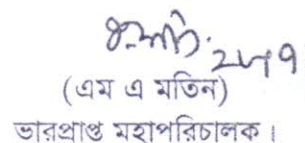 (এম এ মতিন)
ভারপ্রাপ্ত মহাপরিচালক।